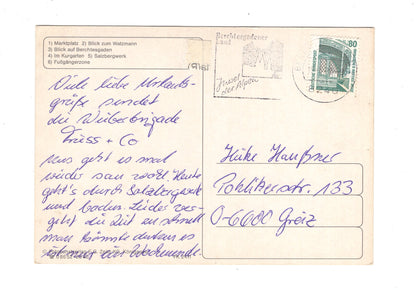 1) Marktplatz 2) Blick zum Watzmann
3) Blick auf Berchtesgaden
4) Im Kurgarten 5) Salzbergwerk
6) Fußgängerzone
Berchtesgadener
Land
der Alpen
80
Viele liebe Urlaubs-
grüße sendet
die Weiberbrigade
Friess + Co
Uns geht es mal
wieder sau wohl Heute
geht's durch Salzbergwerk
und baden. Leider ver-
geht die Zeit zu schnell
man könnte denken es
nur Wochenende.
Haußner
Pohlitzerstr. 133
O-6600 Greiz